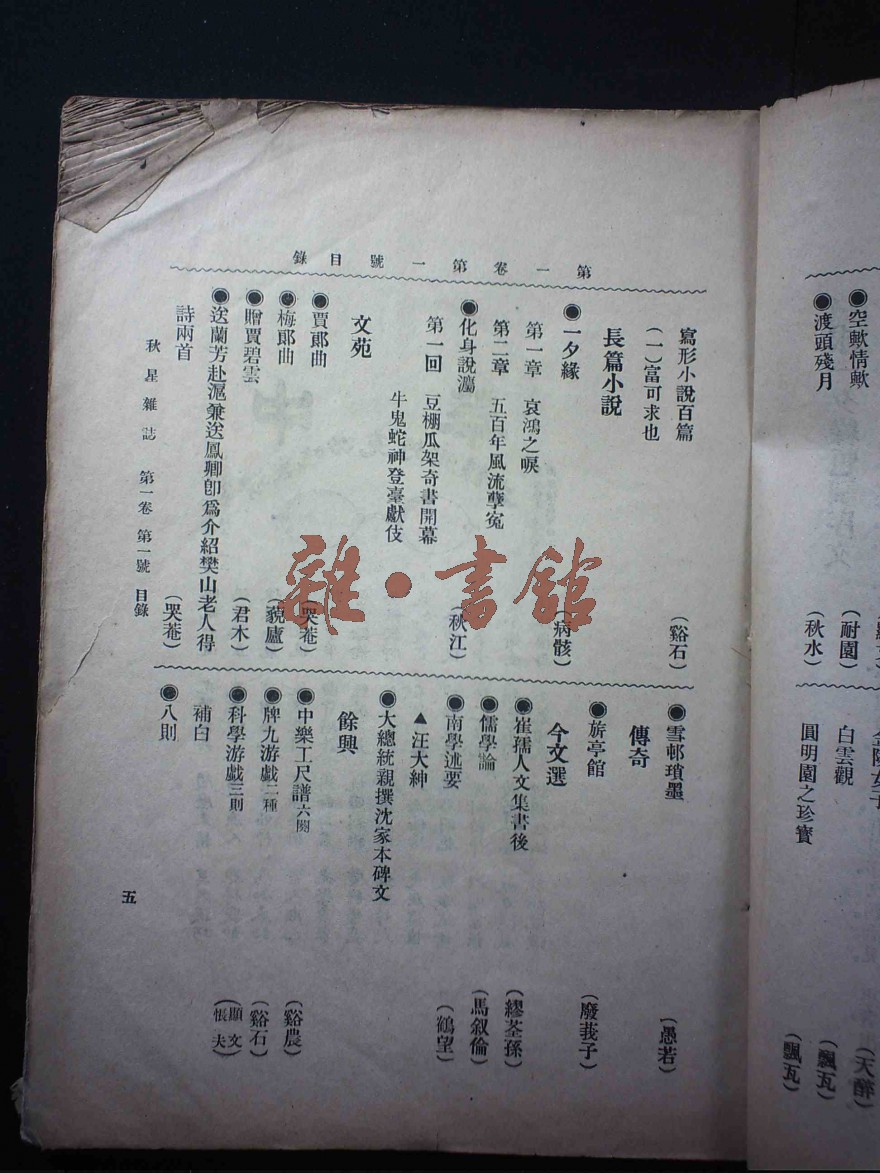 ●空歟情歟
(耐園)
●渡頭殘月
(秋水)
(天醉)
白雲觀
(飄瓦)
圓明園之珍寶
(飄瓦)
第一卷第一號目錄
寫形小說百篇
(一)富可求也
(谿石)
長篇小說
●一夕緣
(病骸)
第一章 哀鴻之唳
第二章 五百年風流孽冤
●化身說灋
(秋江)
第一回 豆棚瓜架奇書開幕
牛鬼蛇神登臺獻伎
文苑
●賈郞曲
(哭菴)
●梅郞曲
(藐廬)
●贈賈碧雲
(君木)
●送蘭芳赴滬兼送鳳卿卽爲介紹樊山老人得
詩兩首
(哭菴)
●雪邨瑣墨
(愚若)
傳奇
●旂亭館
(廢莪子)
今文選
●崔孺人文集書後
(繆荃孫)
●儒學論
(馬叙倫)
●南學述要
(鶴望)
▲汪大紳
●大總統親撰沈家本碑文
餘興
●中樂工尺譜六闋
(谿農)
●牌九游戲二種
(谿石)
●科學游戲三則
(顯文 悵夫)
補白
●八則
秋星雜誌 第一卷 第一號 目錄
五
雜·書館